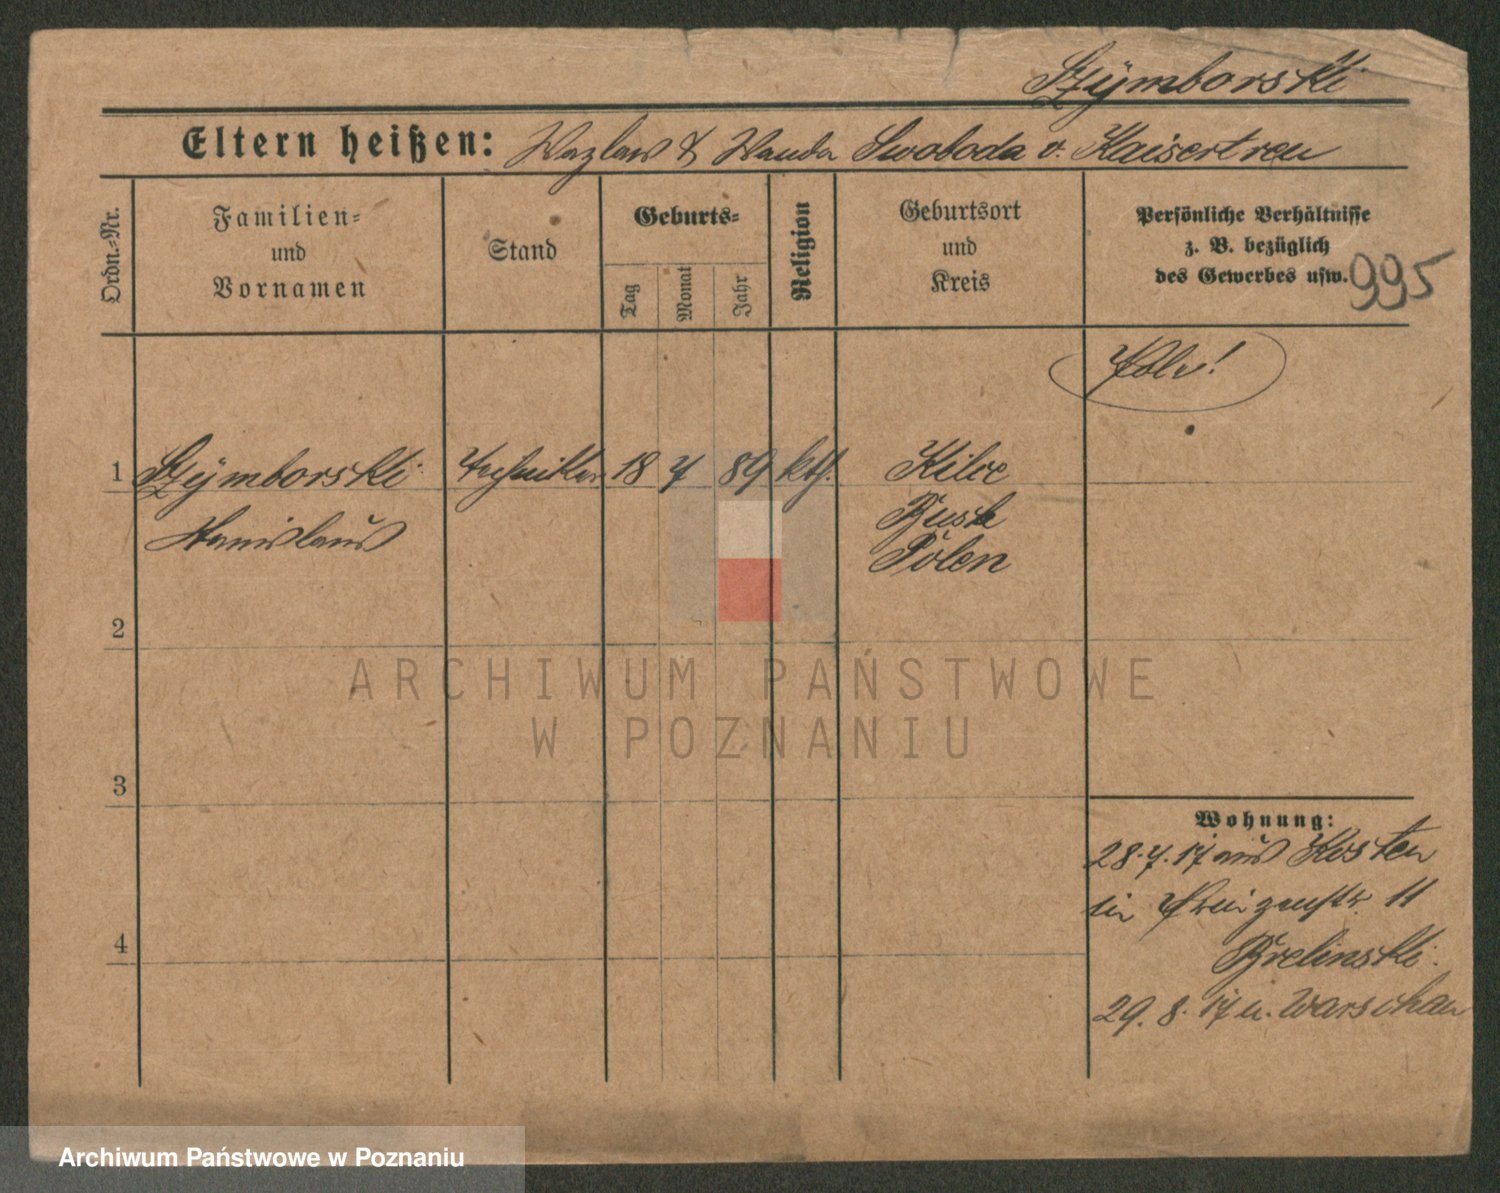 Szÿmborski
Eltern heißen: Wazlaw & Wanda Swoboda v. Kaisertreu
Ordn.-Nr.
Familien-
und
Vornamen
Stand
Geburts-
Tag
Monat
Jahr
Religion
Geburtsort
und
Kreis
Persönliche Verhältnisse
z. B. bezüglich
des Gewerbes usw.
995
Pole!
1 Szÿmborski Techniker 18 7 89 kth. Kilce
Stanislaus Busk
Polen
2
3
4
Wohnung:
28.7.17 aus Kosten
11
Brelinski
29.8.17 n. Warschau
ARCHIWUM PAŃSTWOWE
W POZNANIU
Archiwum Państwowe w Poznaniu